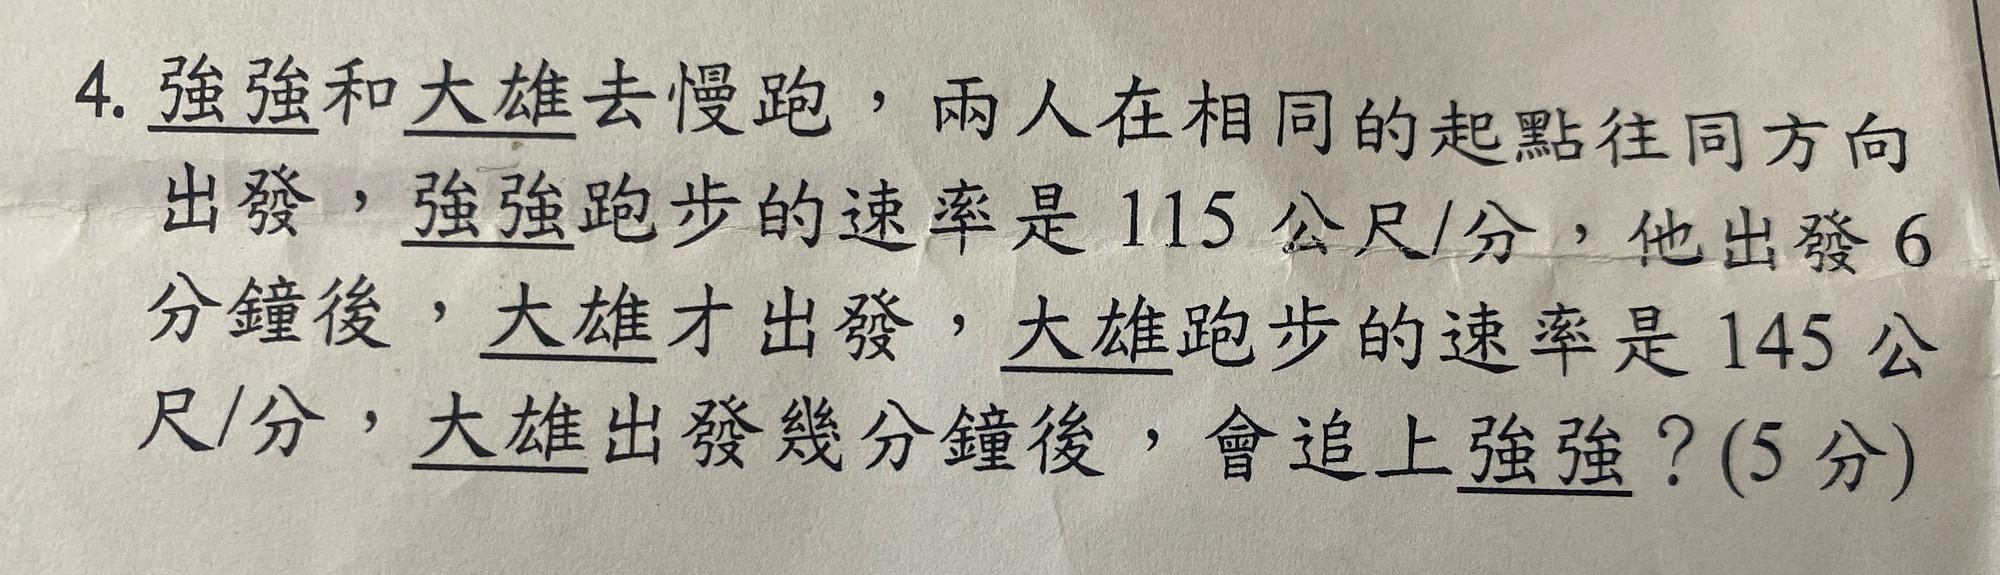 4. 強強和大雄去慢跑，兩人在相同的起點往同方向
出發，強強跑步的速率是 115 公尺/分，他出發 6
分鐘後，大雄才出發，大雄跑步的速率是 145 公
尺/分，大雄出發幾分鐘後，會追上強強？(5 分)